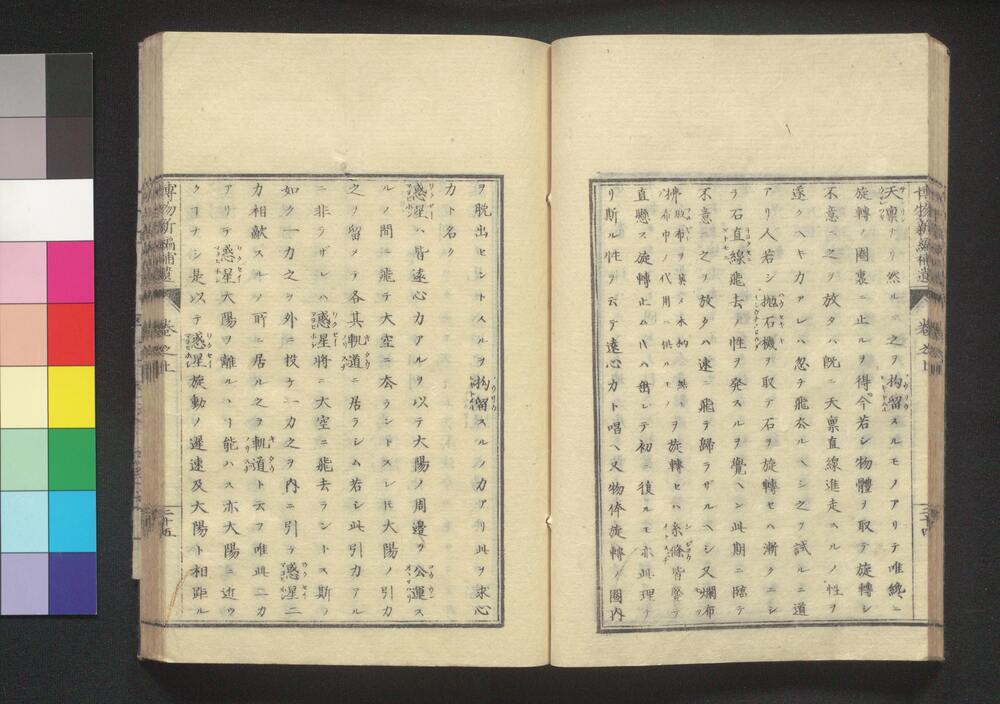 天禀ナリ然ルニ之ヲ拘留スルモノアリテ唯纔ニ
旋轉ノ圈裏ニ止ルヲ得今若シ物體ヲ取テ旋轉シ
不意ニ之ヲ放タハ既ニ天禀直線進走スルノ性ヲ
遂クヘキ力アレハ忽チ飛去ルヘシ之ヲ試ルニ道
アリ人若シ抛石機ヲ取テ石ヲ旋轉セハ漸クニシ
テ石直線飛去ノ性ヲ発スルヲ覺ヘン此期ニ臨テ
不意之ヲ放タハ速ニ飛テ歸ラザルヘシ又爛布
拂ヲ旋轉セハ糸條皆竪テ
直懸ス旋轉止ムトハ垂レテ初ニ復ルモ亦此理ナ
リ斯ル性ヲ云テ遠心力ト唱ヘ又物体旋轉ノ圈内
博物新編補遺 卷之上 二十四
ヲ脱出セントスルヲ拘留スルノ力アリ此ヲ求心
力ト名ク
惑星ハ皆遠心力アルヲ以テ大陽ノ周邊ヲ公運ス
ルノ間ニ飛テ大空ニ去ラントスレ𪜈大陽ノ引力
之ヲ留メテ各其軌道ニ居ラシム若シ此引力アル
ニ非ラザレハ惑星將ニ大空ニ飛去ラントス斯ノ
如ク一力之ヲ外ニ投ケ一力之ヲ内ニ引テ惑星二
力相敵スルノ所ニ居ル之ヲ軌道ト云フ唯此二力
アリテ惑星大陽ヲ離ルヽヿ能ハス亦大陽ニ近ツ
クヿナシ是以テ惑星旋動ノ遲速及大陽ト相距ル
博物新編補遺 卷之上 二十五